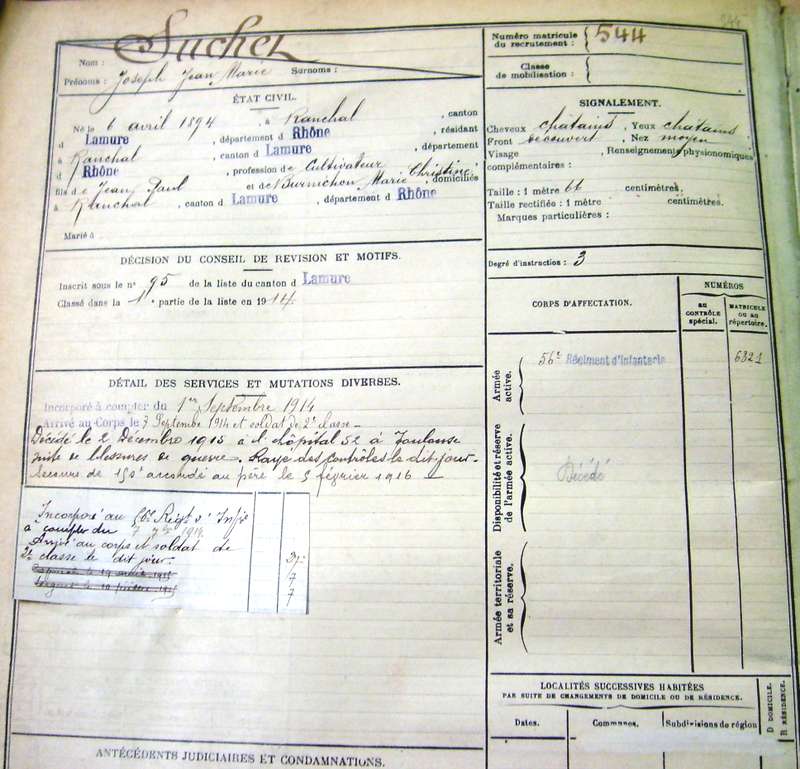 Suchet
Nom :
Prénoms : Joseph Jean Marie Surnoms :
ÉTAT CIVIL.
Né le 6 avril 1894, à Ranchal, canton
d Lamure, département d Rhône, résidant
à Ranchal, canton d Lamure, département
d Rhône, profession de Cultivateur
fils de Jean Paul et de Burnichon Marie Christine, domiciliés
à Ranchal, canton d Lamure, département d Rhône
Marié à
DÉCISION DU CONSEIL DE REVISION ET MOTIFS.
Inscrit sous le n° 95 de la liste du canton d Lamure
Classé dans la 1e partie de la liste en 1914.
DÉTAIL DES SERVICES ET MUTATIONS DIVERSES.
Incorporé à compter du 1er Septembre 1914
Arrivé au Corps le 7 Septembre 1914 et soldat de 2e classe
Décédé le 2 Décembre 1915 à l'hôpital 52 à Toulouse
suite de blessures de guerre. Rayé des contrôles le dit jour.
Secours de 150f accordé au père le 5 février 1916
Incorporé au 56e Régt d'Infie
à compter du 7 7bre 1914.
Arrivé au corps et soldat de
2e classe le dit jour.
7
7
ANTÉCÉDENTS JUDICIAIRES ET CONDAMNATIONS.
Numéro matricule du recrutement : 544
Classe de mobilisation :
SIGNALEMENT.
Cheveux chatains, Yeux chatains
Front découvert, Nez moyen
Visage, Renseignements physionomiques
complémentaires :
Taille : 1 mètre 66 centimètres.
Taille rectifiée : 1 mètre centimètres.
Marques particulières :
Degré d'instruction : 3
CORPS D'AFFECTATION.
NUMÉROS
AU CONTRÔLE spécial.
MATRICULE OU AU répertoire.
Armée active.
56e Régiment d'Infanterie
6321
Disponibilité et réserve de l'armée active.
Décédé
Armée territoriale et sa réserve.
LOCALITÉS SUCCESSIVES HABITÉES
PAR SUITE DE CHANGEMENTS DE DOMICILE OU DE RÉSIDENCE.
Dates.
Communes.
Subdivisions de région
D DOMICILE.
R RÉSIDENCE.